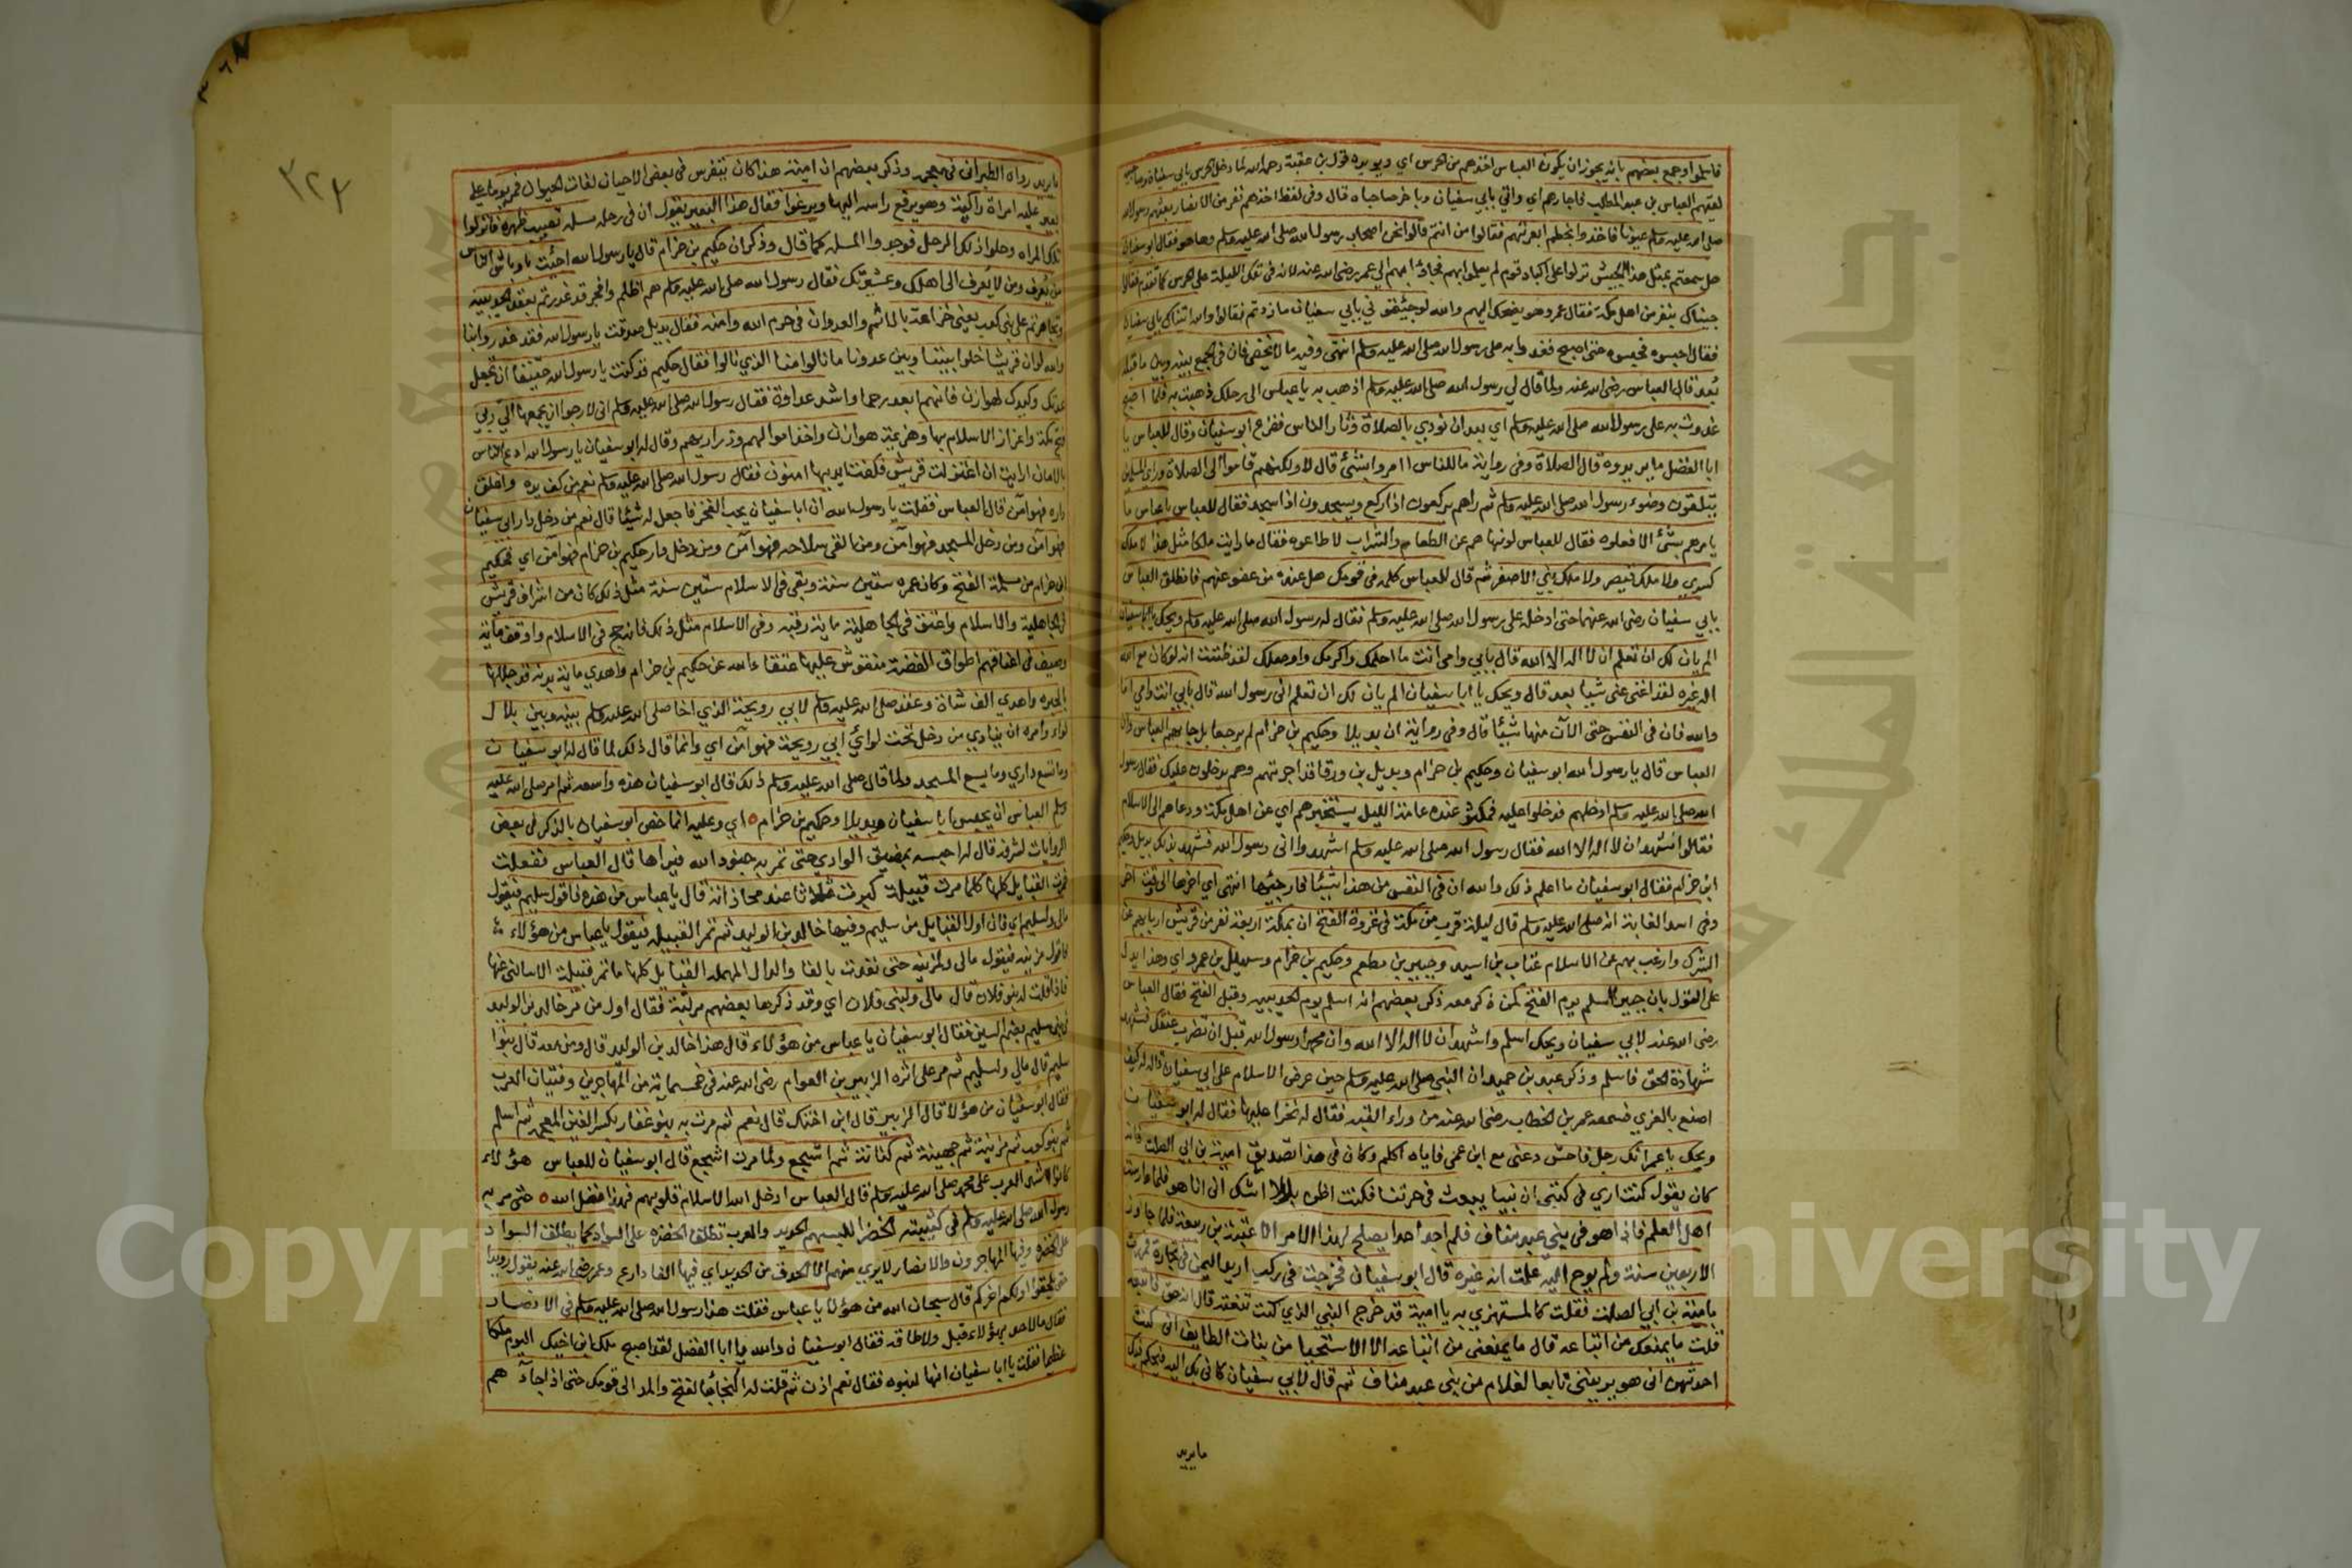 فاسلموا وجمع بعضهم بانه يجوز ان يكون العباس اخذهم من الحرس اي ويويده قول بن عقبة رحمه الله لما دخل الحرس بابي سفيان وصاحبيه
لقيهم العباس بن عبد المطلب فاجارهم اي واتي بابي سفيان وباخر صاحباه قال وفي لفظ اخذهم نفر من الانصار بعثهم رسول الله
صلى الله عليه وسلم عيونا فاخذوا بخطم ابعرتهم فقالوا من انتم قالوا نحن اصحاب رسول الله صلى الله عليه وسلم وها هو فقال ابو سفيان
هل سمعتم بمثل هذا الجيش نزلوا على اكباد قوم لم يعلموا بهم فجاؤا بهم الي عمر رضي الله عنه لانه في تلك الليلة على الحرس كما تقدم فقالوا
جيناك بنفر من اهل مكة فقال عمر وهو يضحك اليهم والله لو جيتموني بابي سفيان ما زدتم فقالوا والله اتيناك بابي سفيان
فقال احبسوه فحبسوه حتى اصبح فغدا به على رسول الله صلى الله عليه وسلم انتهى وفيه ما لا يخفى فان في الجمع بينه وبين ما قبله
بُعد قال العباس رضي الله عنه ولما قال لي رسول الله صلى الله عليه وسلم اذهب به يا عباس الى رحلك ذهبت به فلما اصبح
غدوت به على رسول الله صلى الله عليه وسلم اي بعد ان نودي بالصلاة وثار الناس ففزع ابو سفيان وقال للعباس يا
ابا الفضل ما يريدوه قال الصلاة وفي رواية ما للناس اامروا بشئ قال لا ولكنهم قاموا الى الصلاة وراي المسلمين
يتلقون وضوء رسول الله صلى الله عليه وسلم ثم راهم يركعون اذا ركع ويسجدون اذا سجد فقال للعباس يا عباس ما
يامرهم بشئ الا فعلوه فقال للعباس لو نهاهم عن الطعام والشراب لاطاعوه فقال ما رايت ملكا مثل هذا لا ملك
كسري ولا ملك قيصر ولا ملك بني الاصفر ثم قال للعباس كلمه في قومك هل عنده من عفو عنهم فانطلق العباس
بابي سفيان رضي الله عنهما حتى ادخله على رسول الله صلى الله عليه وسلم فقال له رسول الله صلى الله عليه وسلم ويحك يا ابا سفيان
الم يان لك ان تعلم ان لا اله الا الله قال بابي وامي انت ما احلمك واكرمك واوصلك لقد ظننت انه لو كان مع الله
اله غيره لقد اغنى عني شيا بعد قال ويحك يا ابا سفيان الم يان لك ان تعلم اني رسول الله قال بابي انت وامي اما
والله فان في النفس حتى الآن منها شيئا قال وفي رواية ان بديلا وحكيم بن حزام لم يرجعا بل جا بهم العباس وان
العباس قال يا رسول الله ابو سفيان وحكيم بن حزام وبديل بن ورقا قد اجرتهم وهم يدخلون عليك فقال رسول
الله صلى الله عليه وسلم ادخلهم فدخلوا عليه فمكثوا عنده عامة الليل يستخبرهم اي عن اهل مكة ودعاهم الى الاسلام
فقالوا نشهد ان لا اله الا الله فقال رسول الله صلى الله عليه وسلم اشهدوا اني رسول الله فشهد بذلك بديل وحكيم
ابن حزام فقال ابو سفيان ما اعلم ذلك والله ان في النفس من هذا شيئا فارجئها انتهى اي اخرها الى وقت اخر
وفي اسد الغابة انه صلى الله عليه وسلم قال ليلة قرب من مكة في غزوة الفتح ان بمكة اربعة نفر من قريش اربا بهم عن
الشرك وارغب بهم عن الاسلام عتاب بن اسيد وجبير بن مطعم وحكيم بن حزام وسهيل بن عمرو اي وهذا يدل
على القول بان جبير اسلم يوم الفتح كمن ذكر معه ذكر بعضهم انه اسلم يوم الحديبيه وقبل الفتح فقال العباس
رضي الله عنه لابي سفيان ويحك اسلم واشهد ان لا اله الا الله وان محمدا رسول الله قبل ان تضرب عنقك فشهد
شهادة الحق فاسلم وذكر عبد بن حميد ان النبي صلى الله عليه وسلم حين عرض الاسلام على ابي سفيان قال له كيف
اصنع بالعزي فسمعه عمر بن الخطاب رضي الله عنه من وراء القبه فقال له تخرا عليها فقال له ابو سفيان
ويحك يا عمر انك رجل فاحش دعني مع ابن عمي فاياه اكلم وكان في هذا تصديق امية بن ابي الصلت فانه
كان يقول كنت اري في كتبي ان نبيا يبعث في حرتنا فكنت اظن بل لا اشك اني انا هو فلما دارست
اهل العلم فاذا هو في بني عبد مناف فلم اجد احدا يصلح لهذا الامر الا عتبة بن ربيعة فلما جاوز
الاربعين سنة ولم يوح اليه علمت انه غيره قال ابو سفيان فخرجت في ركب اريد اليمن في تجارة فمررت
بامية بن ابي الصلت فقلت كالمستهزي به يا امية قد خرج النبي الذي كنت تنعته قال انه حق فاتبعه
قلت ما يمنعك من اتباعه قال ما يمنعني من اتباعه الا الاستحيا من بنات الطايف اني كنت
احدثهن اني هو يرينني تابعا لغلام من بني عبد مناف ثم قال لابي سفيان كاني بك اليه فيحكم فيك
ما يريد
٣٢٣
ما يريد رواه الطبراني في معجمه وذكر بعضهم ان امية هذا كان يتفرس في بعض الاحيان لغات الحيوان فمر يوما على
بعير عليه امراة راكبة وهو يرفع راسه اليها ويرغوا فقال هذا البعير يقول ان في رحله مسلة تصيب ظهره فانزلوا
تلك المراه وحلوا ذلك الرحل فوجدوا المسلة كما قال وذكر ان حكيم بن حزام قال يا رسول الله اجئت باوباش الناس
من يُعرف ومن لا يُعرف الى اهلك وعشيرتك فقال رسول الله صلى الله عليه وسلم هم اظلم وافجر قد غدرتم بعقد الحديبيه
وتظاهرتم على بني كعب يعني خزاعة بالاثم والعدوان في حرم الله وامنه فقال بديل صدقت يا رسول الله فقد غدروا بنا
والله لو ان قريشا خلوا بيننا وبين عدونا ما نالوا منا الذي نالوا فقال حكيم قد كنت يا رسول الله حقيقا ان تجعل
عدتك وكيدك لهوازن فانهم ابعد رحما واشد عداوة فقال رسول الله صلى الله عليه وسلم اني لارجوا ان يجمعهما الي ربي
فتح مكة واعزاز الاسلام بها وهزيمة هوازن واخذ اموالهم وذراريهم وقال له ابو سفيان يا رسول الله ادع الناس
بالامان ارايت ان اعتزلت قريش فكفت ايديها امنون فقال رسول الله صلى الله عليه وسلم نعم من كف يده واغلق
داره فهو آمن قال العباس فقلت يا رسول الله ان ابا سفيان يحب الفخر فاجعل له شيئا قال نعم من دخل دار ابي سفيان
فهو آمن ومن دخل المسجد فهو آمن ومن القى سلاحه فهو آمن ومن دخل دار حكيم بن حزام فهو آمن اي فحكيم
ابن حزام من مسلمة الفتح وكان عمره ستين سنة وبقي في الاسلام ستين سنة مثل ذلك كان من اشراف قريش
في الجاهلية والاسلام واعتق في الجاهلية ماية رقبه وفي الاسلام مثل ذلك فانه حج في الاسلام واوقف ماية
وصيف في اعناقهم اطواق الفضة منقوش عليها عتقاء الله عن حكيم بن حزام واهدي ماية بدنة قد جللها
بالحبره واهدي الف شاة وعقد صلى الله عليه وسلم لابي رويحة الذي اخا صلى الله عليه وسلم بينه وبين بلال
لواء وامره ان ينادي من دخل تحت لواء ابي رويحة فهو آمن اي وانما قال ذلك لما قال له ابو سفيان
وما تسع داري وما يسع المسجد ولما قال صلى الله عليه وسلم ذلك قال ابو سفيان هذه واسعه ثم امر صلى الله عليه
وسلم العباس ان يحبس ابا سفيان وبديلا وحكيم بن حزام اي وعليه انما خص ابو سفيان بالذكر في بعض
الروايات لشرفه قال له احبسه بمضيق الوادي حتى تمر به جنود الله فيراها قال العباس ففعلت
فمرت القبايل كلها كلما مرت قبيلة كبرت ثلاثا عند محاذاته قال يا عباس من هذه فاقول سليم فيقول
مالي ولسليم اي فان اول القبايل من سليم وفيها خالد بن الوليد ثم تمر القبيله فيقول يا عباس من هؤلاء
فاقول مزينه فيقول مالي ولمزينه حتى نفدت بالفا والدال المهمله القبايل كلها ما تمر قبيلة الا سالني عنها
فاذا قلت له بنو فلان قال مالي ولبني فلان اي وقد ذكرها بعضهم مرتبة فقال اول من مر خالد بن الوليد
في بني سليم بضم السين فقال ابو سفيان يا عباس من هؤلاء قال هذا خالد بن الوليد قال ومن معه قال بنوا
سليم قال مالي ولسليم ثم مر على اثره الزبير بن العوام رضي الله عنه في خمسماية من المهاجرين وفتيان العرب
فقال ابو سفيان من هؤلا قال الزبير قال ابن اختك قال نعم ثم مرت به بنو غفار بكسر الغين المعجمه ثم اسلم
ثم بنو كعب ثم مزينة ثم جهينة ثم كنانة ثم اشجع ولما مرت اشجع قال ابو سفيان للعباس هؤلاء
كانوا اشد العرب على محمد صلى الله عليه وسلم قال العباس ادخل الله الاسلام قلوبهم فهذا فضل الله حتى مر به
رسول الله صلى الله عليه وسلم في كتيبته الخضرا للبسهم الحديد والعرب تطلق الخضره على السواد كما يطلق السواد
على الخضره وفيها المهاجرون والانصار لا يري منهم الا الحدق من الحديد اي فيها الفا دارع وعمر رضي الله عنه يقول رويدا
حتى يلحق اولكم اخركم قال سبحان الله من هؤلا يا عباس فقلت هذا رسول الله صلى الله عليه وسلم في الانصار
فقال ما لاحد بهؤلاء قبل ولا طاقه فقال ابو سفيان والله يا ابا الفضل لقد اصبح ملك ابن اخيك اليوم ملكا
عظيما فقلت يا ابا سفيان انها لنبوه فقال نعم اذن ثم قلت له النجأ بالفتح والمد الى قومك حتى اذا جاءهم
Copyright © King Saud University
جامعة الملك سعود